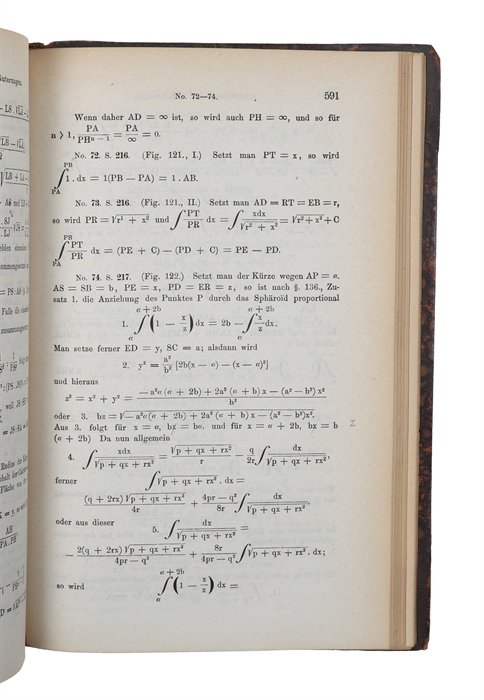 No. 72—74. 591
Wenn daher AD = ∞ ist, so wird auch PH = ∞, und so für
n > 1, PA/PHⁿ⁻¹ = PA/∞ = 0.
No. 72. S. 216. (Fig. 121., I.) Setzt man PT = x, so wird
PB
∫1 . dx = 1(PB — PA) = 1 . AB.
PA
No. 73. S. 216. (Fig. 121., II.) Setzt man AD = RT = EB = r,
so wird PR = √r² + x² und ∫PT/PR dx = ∫xdx/√r² + x² = √r² + x² + C
PB
∫PT/PR dx = (PE + C) — (PD + C) = PE — PD.
PA
No. 74. S. 217. (Fig. 122.) Setzt man der Kürze wegen AP = α.
AS = SB = b, PE = x, PD = ER = z, so ist nach §. 136., Zu-
satz 1. die Anziehung des Punktes P durch das Sphäroïd proportional
α + 2b α + 2b
1. ∫(1 — x/z)dx = 2b — ∫x/z dx.
α α
Man setze ferner ED = y, SC = a; alsdann wird
2. y² = a²/b² [2b(x — α) — (x — α)²]
und hieraus
z² = x² + y² = —a²α(α + 2b) + 2a²(α + b)x — (a² — b²)x²/b²
oder 3. bz = √—a²α(α + 2b) + 2a²(α + b)x — (a² — b²)x².
Aus 3. folgt für x = α, bz = bα. und für x = α + 2b, bz = b
(α + 2b) Da nun allgemein
4. ∫xdx/√p + qx + rx² = √p + qx + rx²/r — q/2r ∫dx/√p + qx + rx²,
ferner ∫√p + qx + rx² . dx =
(q + 2rx)√p + qx + rx²/4r + 4pr — q²/8r ∫dx/√p + qx + rx²,
oder aus dieser
5. ∫dx/√p + qx + rx² =
— 2(q + 2rx)√p + qx + rx²/4pr — q² + 8r/4pr — q² ∫√p + qx + rx² . dx;
α + 2b
so wird ∫(1 — x/z)dx =
α